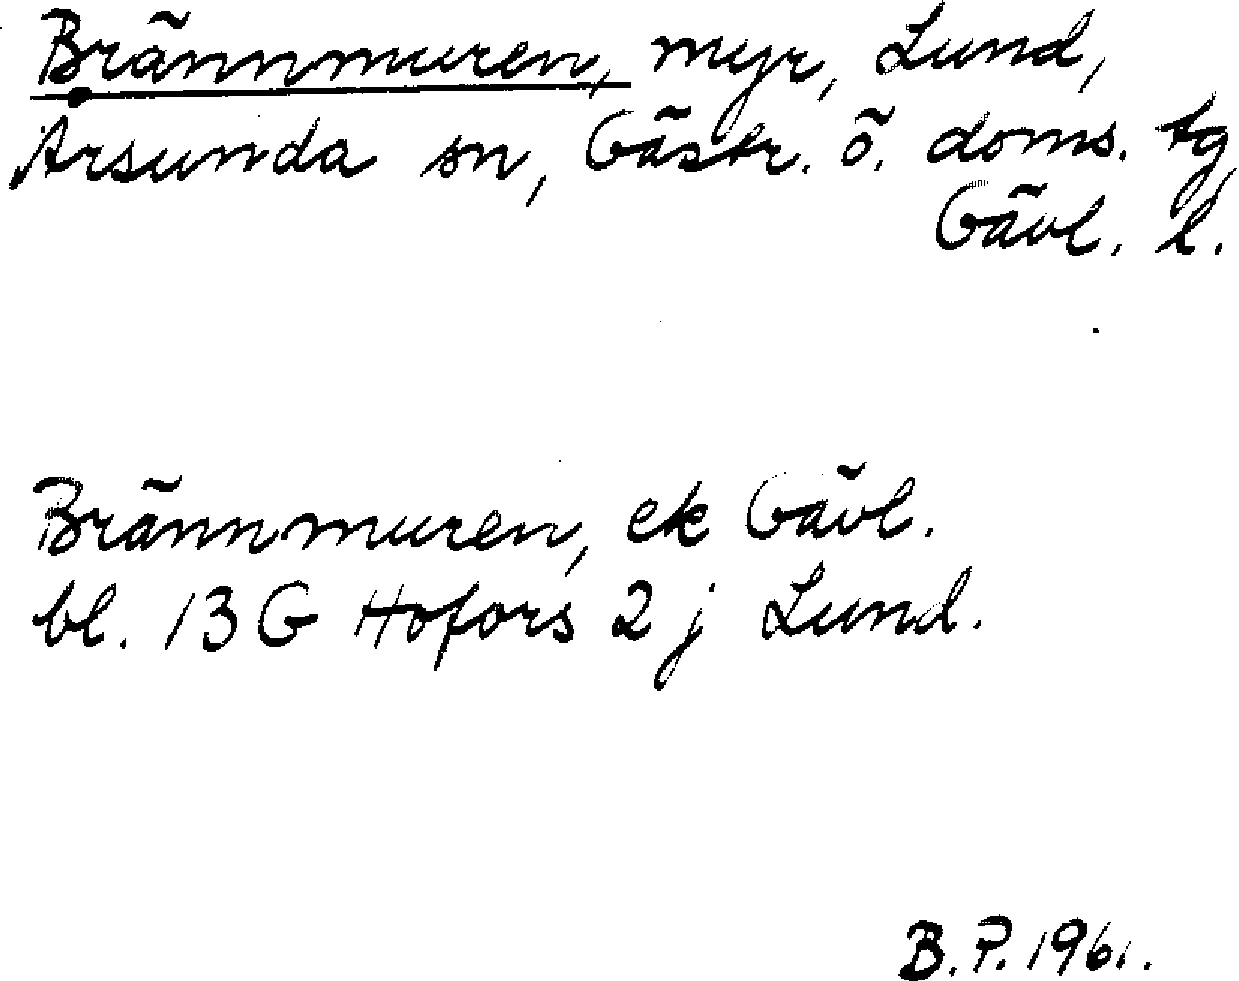 Brännmuren, myr, Lund,
Årsunda sn, Gästr. ö. doms. tg,
Gävl. l.
Brännmuren, ek Gävl.
bl. 13 G Hofors 2 j Lund.
B.P. 1961.